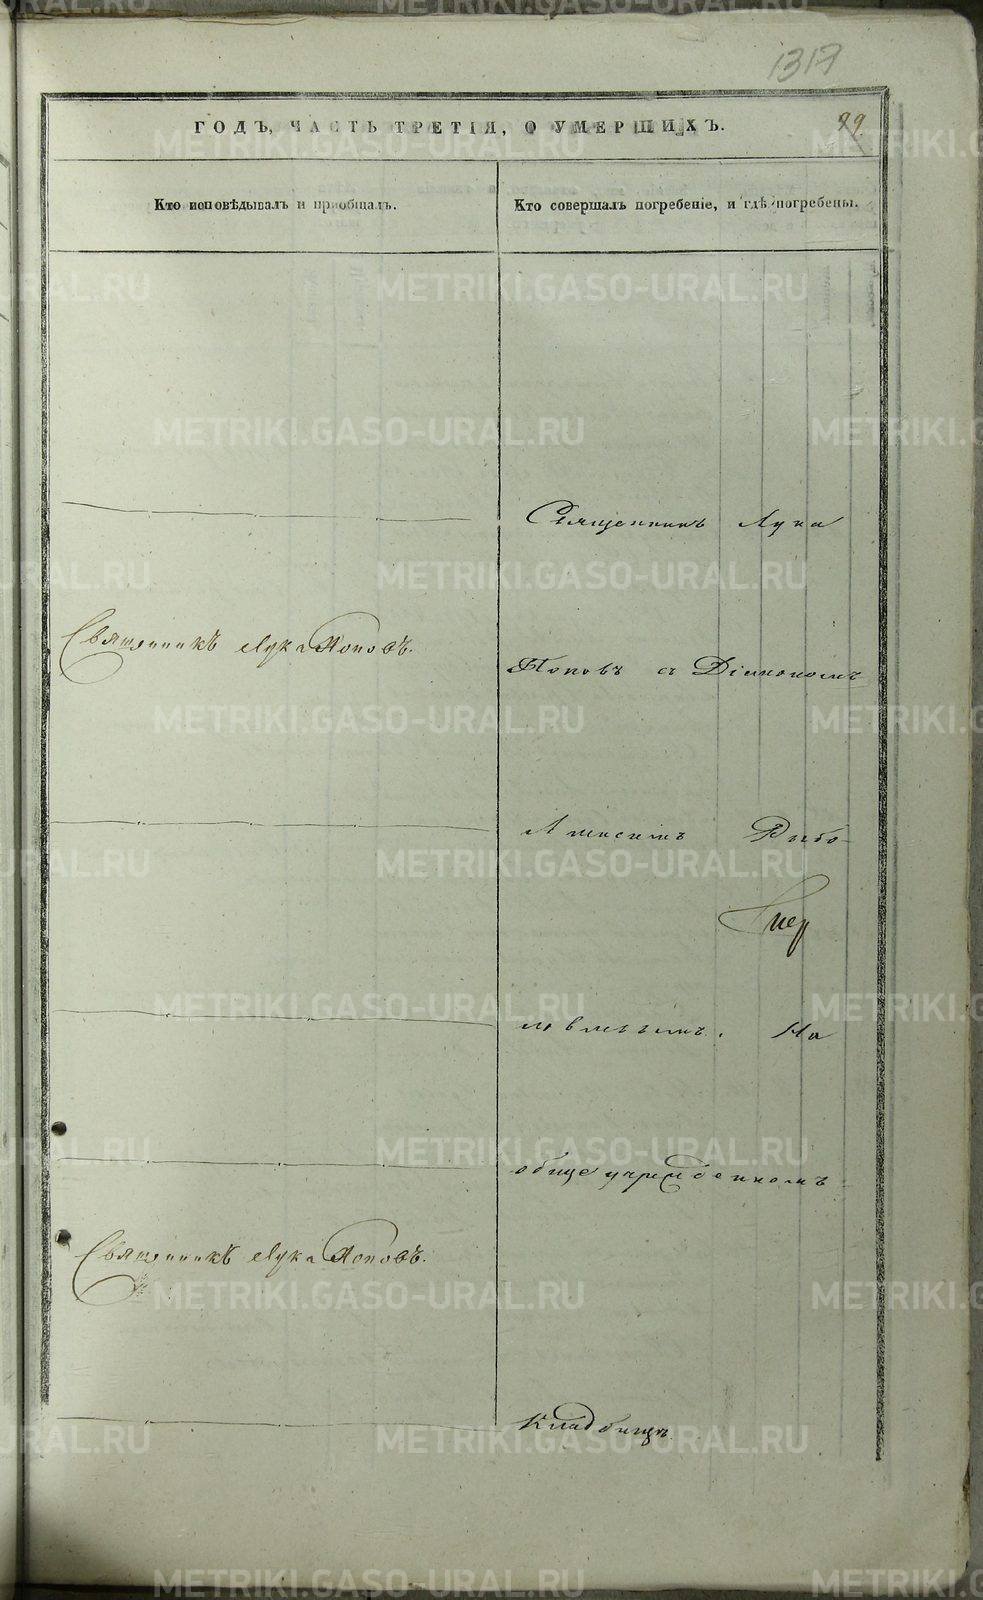 1317
ГОДЪ, ЧАСТЬ ТРЕТІЯ, О УМЕРШИХЪ.
99
Кто исповѣдывалъ и пріобщалъ.
Кто совершалъ погребеніе, и гдѣ погребены.
Священникъ Лука
Священникъ Лука Поповъ.
Поповъ съ Діакономъ
Рыбо-
ловлевымъ. На
общеучрежденномъ
Священникъ Лука Поповъ.
Кладбищѣ
METRIKI.GASO-URAL.RU